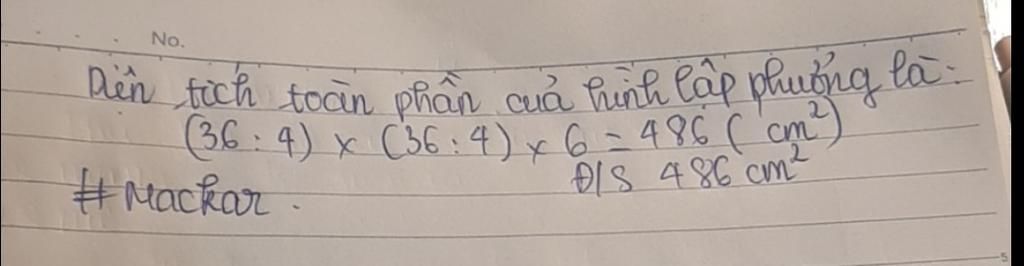 No.
Diên tích toàn phần của hình lập phường là:
(36 : 4) x (36 : 4) x 6 = 486 ( cm²)
Đ/S 486 cm²
# Mackar.
5